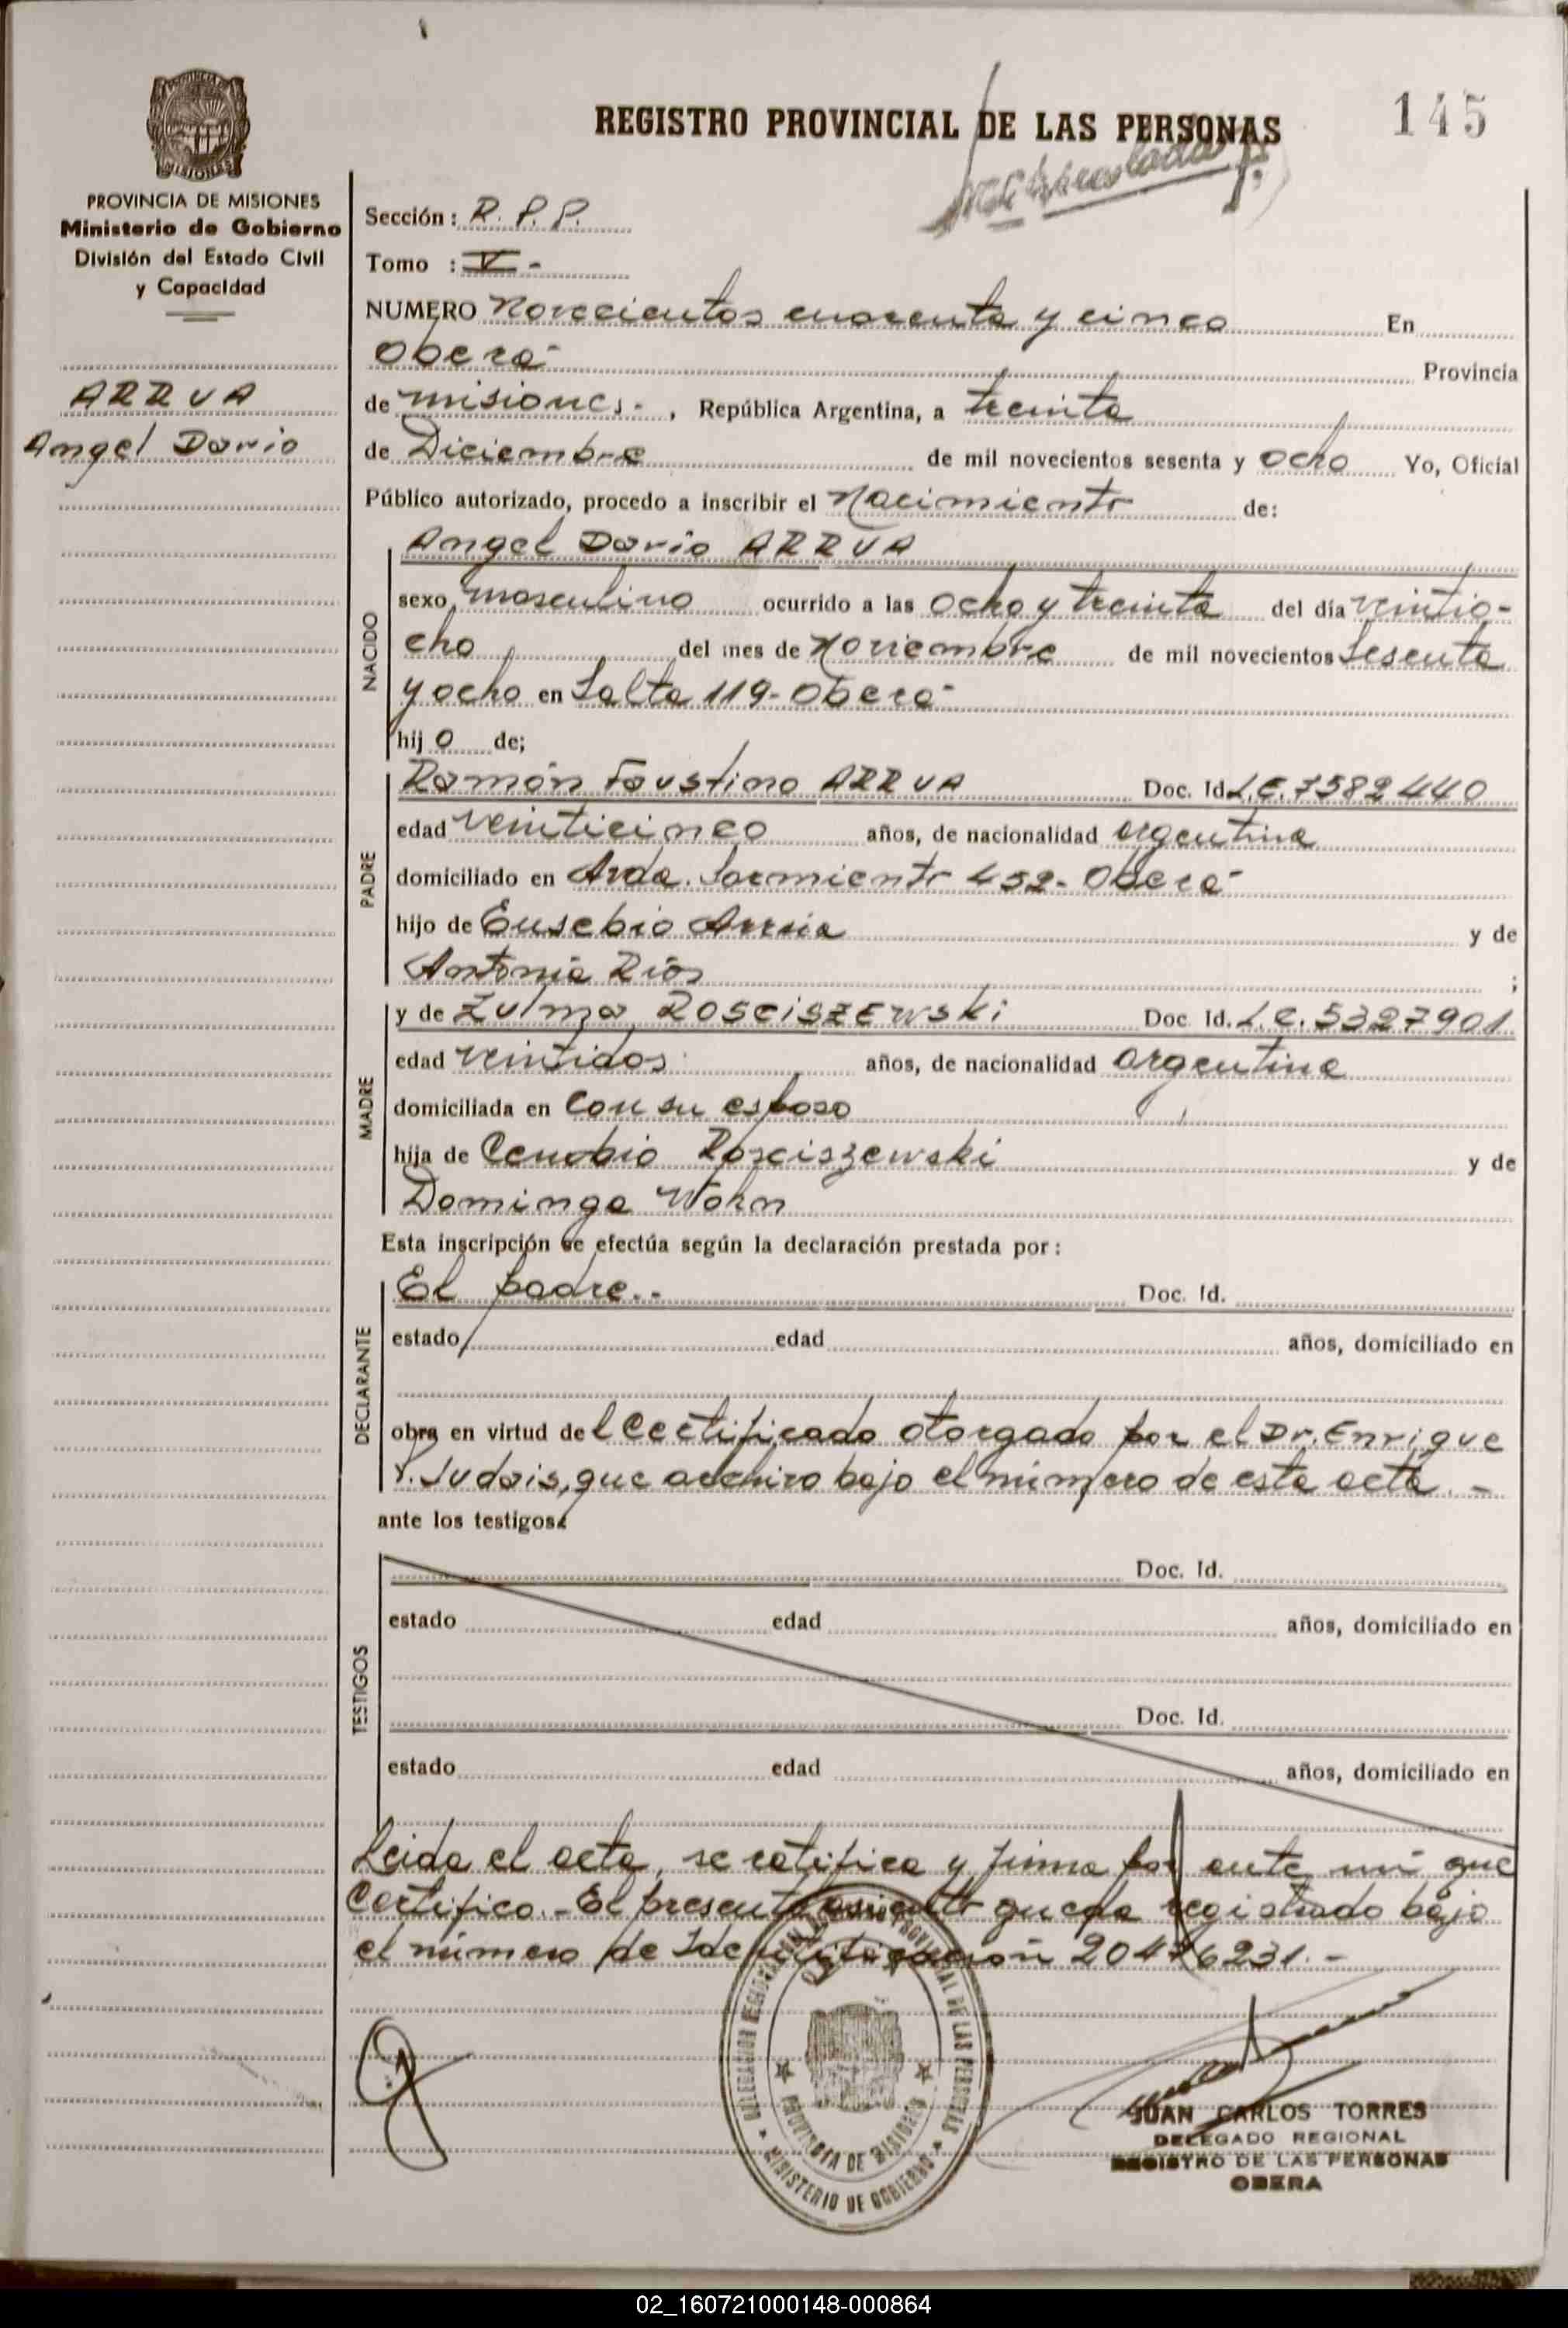 REGISTRO PROVINCIAL DE LAS PERSONAS
145
MISIONES
PROVINCIA DE MISIONES
Ministerio de Gobierno
División del Estado Civil
y Capacidad
ARRUA
Angel Dario
Sección: R. P. P.
Tomo : V -
NUMERO Novecientos cuarenta y cinco En
Oberá- Provincia
de misiones.- , República Argentina, a treinta
de Diciembre de mil novecientos sesenta y ocho Yo, Oficial
Público autorizado, procedo a inscribir el Nacimiento de:
Angel Dario ARRUA
NACIDO
sexo masculino ocurrido a las ocho y treinta del día veintio-
cho del mes de Noviembre de mil novecientos sesenta
y ocho en Salta 119- Oberá-
hij o de;
PADRE
Ramón Faustino ARRUA Doc. Id. L.E. 7582440
edad veinticinco años, de nacionalidad argentina
domiciliado en Avda. Sarmiento 452- Oberá-
hijo de Eusebio Arrúa y de
Antonia Ríos ;
MADRE
y de Zulma ROSCISZEWSKI Doc. Id. L.C. 5327901
edad veintidos años, de nacionalidad argentina
domiciliada en con su esposo
hija de Cenobio Rosciszewski y de
Dominga Wohn
Esta inscripción se efectúa según la declaración prestada por:
DECLARANTE
El padre.- Doc. Id.
estado edad años, domiciliado en
obra en virtud del certificado otorgado por el Dr. Enrique
Judais, que archivo bajo el número de esta acta. -
ante los testigos:
TESTIGOS
Doc. Id.
estado edad años, domiciliado en
Doc. Id.
estado edad años, domiciliado en
Leida el acta, se ratifica y firma por ante mi que
Certifico.- El presente asiento queda registrado bajo
el número de Identificación 20476231.-
PROVINCIAL DE LAS PERSONAS
PROVINCIA DE MISIONES
MINISTERIO DE GOBIERNO
JUAN CARLOS TORRES
DELEGADO REGIONAL
REGISTRO DE LAS PERSONAS
OBERA
02_160721000148-000864